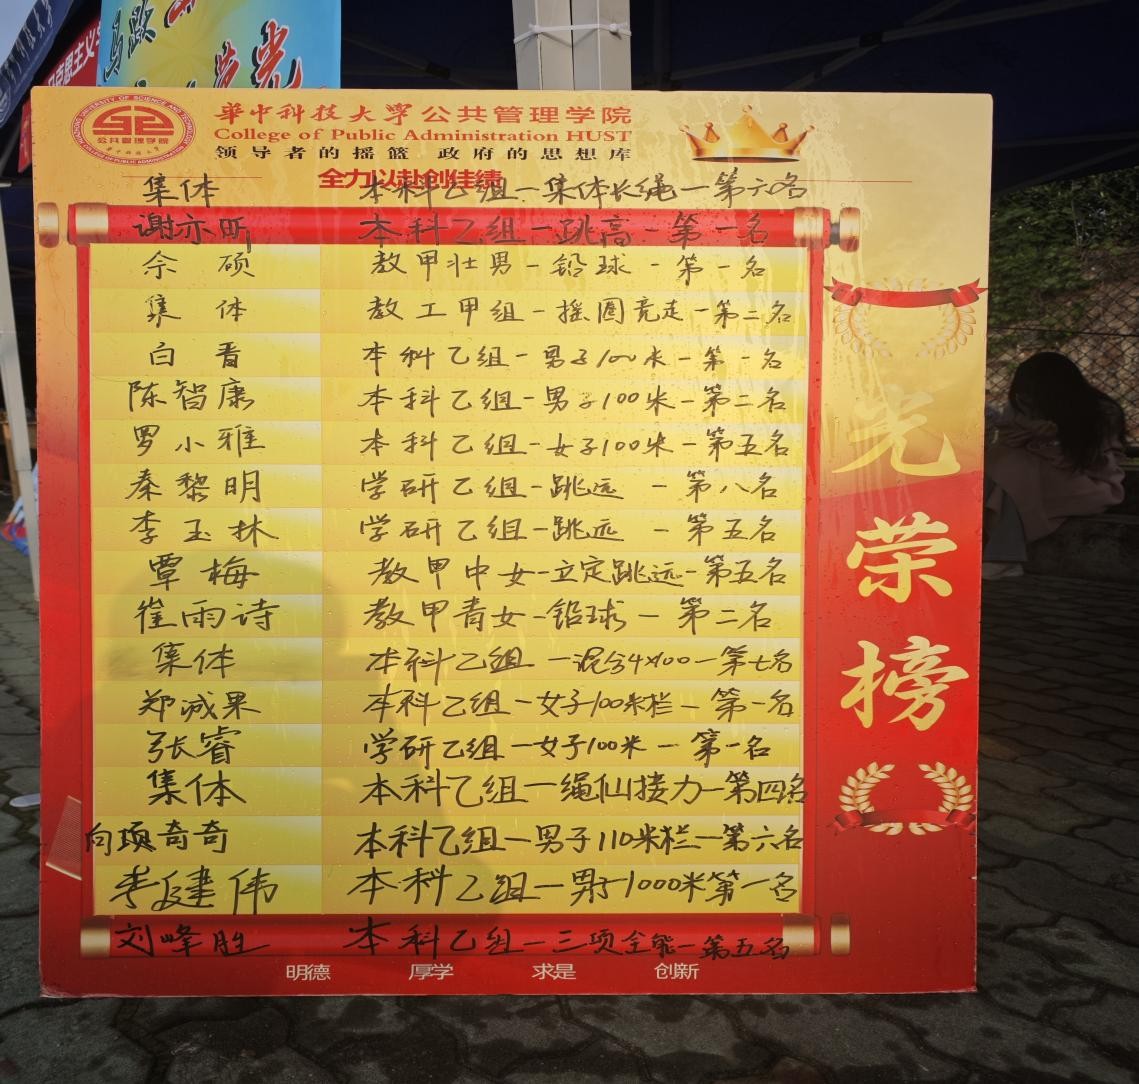 華中科技大學公共管理学院
College of Public Administration HUST
领导者的摇篮 政府的思想库
全力以赴创佳绩
集体 本科乙组-集体长绳-第六名
谢亦昕 本科乙组-跳高-第一名
佘硕 教甲壮男-铅球-第一名
集体 教工甲组-摇圈竞走-第二名
白晋 本科乙组-男子100米-第一名
陈智康 本科乙组-男子100米-第二名
罗小雅 本科乙组-女子100米-第五名
秦黎明 学研乙组-跳远-第八名
李玉林 学研乙组-跳远-第五名
覃梅 教甲中女-立定跳远-第五名
崔雨诗 教甲青女-铅球-第二名
集体 本科乙组-混合4×100-第七名
郑诚果 本科乙组-女子100米栏-第一名
张睿 学研乙组-女子100米-第一名
集体 本科乙组-绳仙接力-第四名
向项奇奇 本科乙组-男子110米栏-第六名
李健伟 本科乙组-男子1000米第一名
刘峰胜 本科乙组-三项全能-第五名
光荣榜
明德 厚学 求是 创新